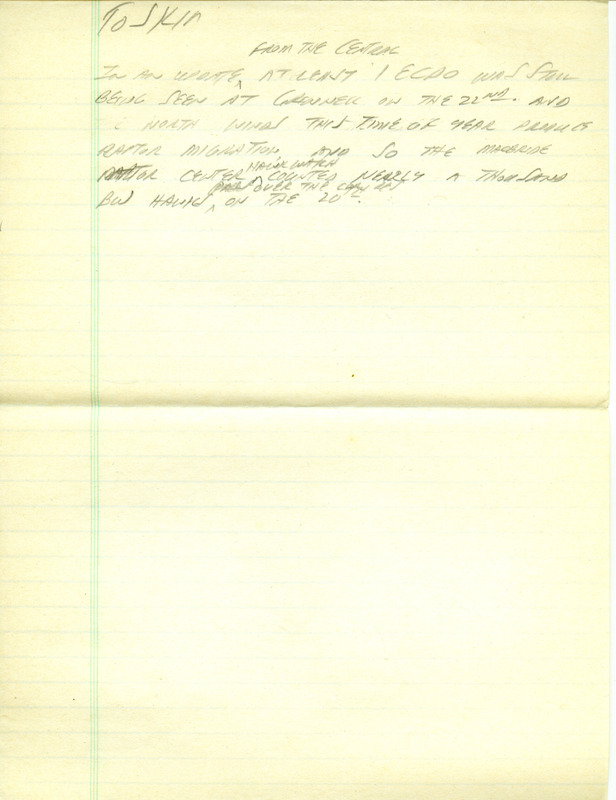 TO SKIP
FROM THE CENTRAL
IN AN UPDATE, AT LEAST 1 ECDO WAS STILL
BEING SEEN AT GRINNELL ON THE 22ND. AND
NORTH WINDS THIS TIME OF YEAR PRODUCE
RAPTOR MIGRATION AND SO THE MACBRIDE
HAWK WATCH
RAPTOR CENTER COUNTED NEARLY A THOUSAND
OVER THE
BW HAWKS ON THE 20TH.